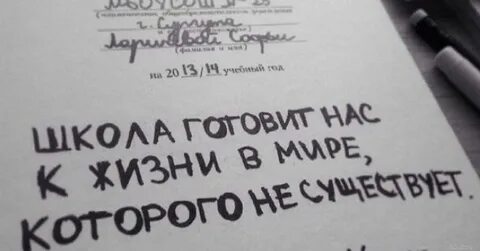 МБОУСОШ № 25
(наименование общеобразовательного учреждения)
г. Сургута
Лариновой Софьи
(фамилия и имя)
на 2013/14 учебный год
ШКОЛА ГОТОВИТ НАС
К ЖИЗНИ В МИРЕ,
КОТОРОГО НЕ СУЩЕСТВУЕТ.